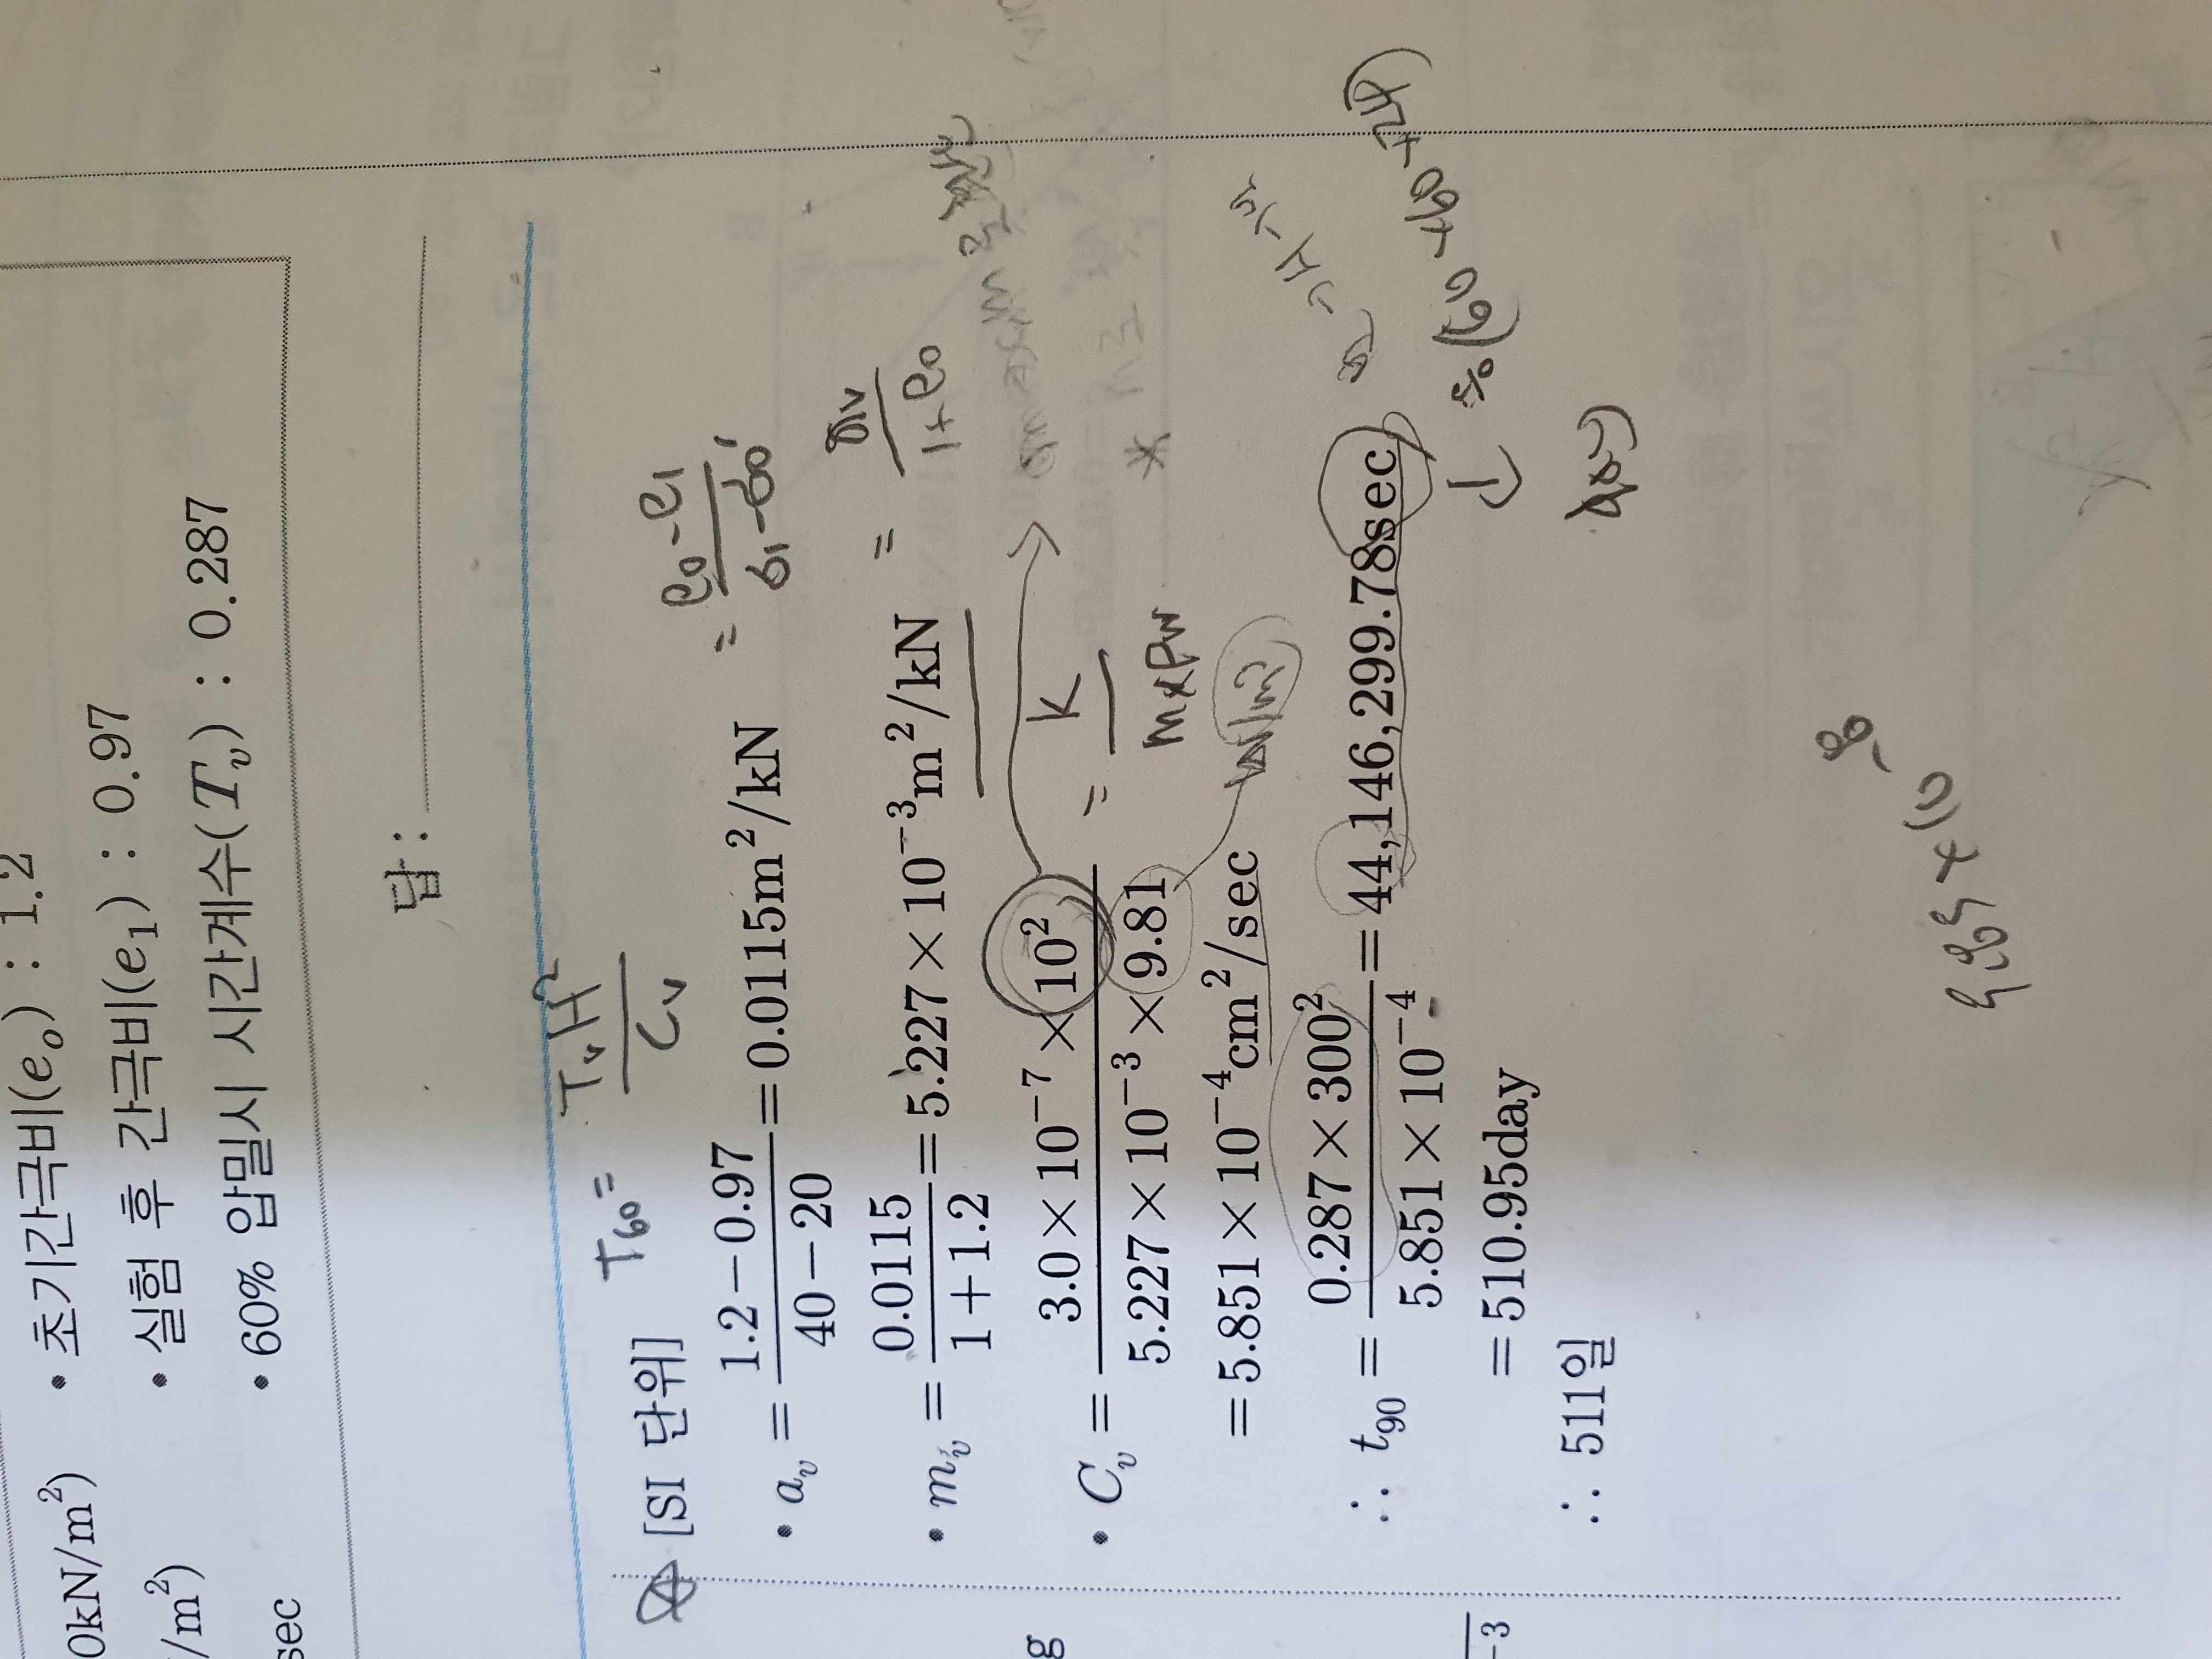 • 초기간극비(e₀) : 1.2
0kN/m²) • 실험 후 간극비(e₁) : 0.97
/m²) • 60% 압밀시 시간계수(Tᵥ) : 0.287
sec
답 :
T₆₀ = TᵥH² / Cᵥ
[SI 단위]
• aᵥ = (1.2−0.97) / (40−20) = 0.0115m²/kN = (e₀−e₁) / (σ₁−σ₀)
• mᵥ = 0.0115 / (1+1.2) = 5.227×10⁻³m²/kN = aᵥ / (1+e₀)
• Cᵥ = (3.0×10⁻⁷×10²) / (5.227×10⁻³×9.81) = K / (m×ρw)
= 5.851×10⁻⁴cm²/sec
∴ t₉₀ = (0.287×300²) / (5.851×10⁻⁴) = 44,146,299.78sec
÷(60×60×24)
= 510.95day
day
∴ 511일
g
−3